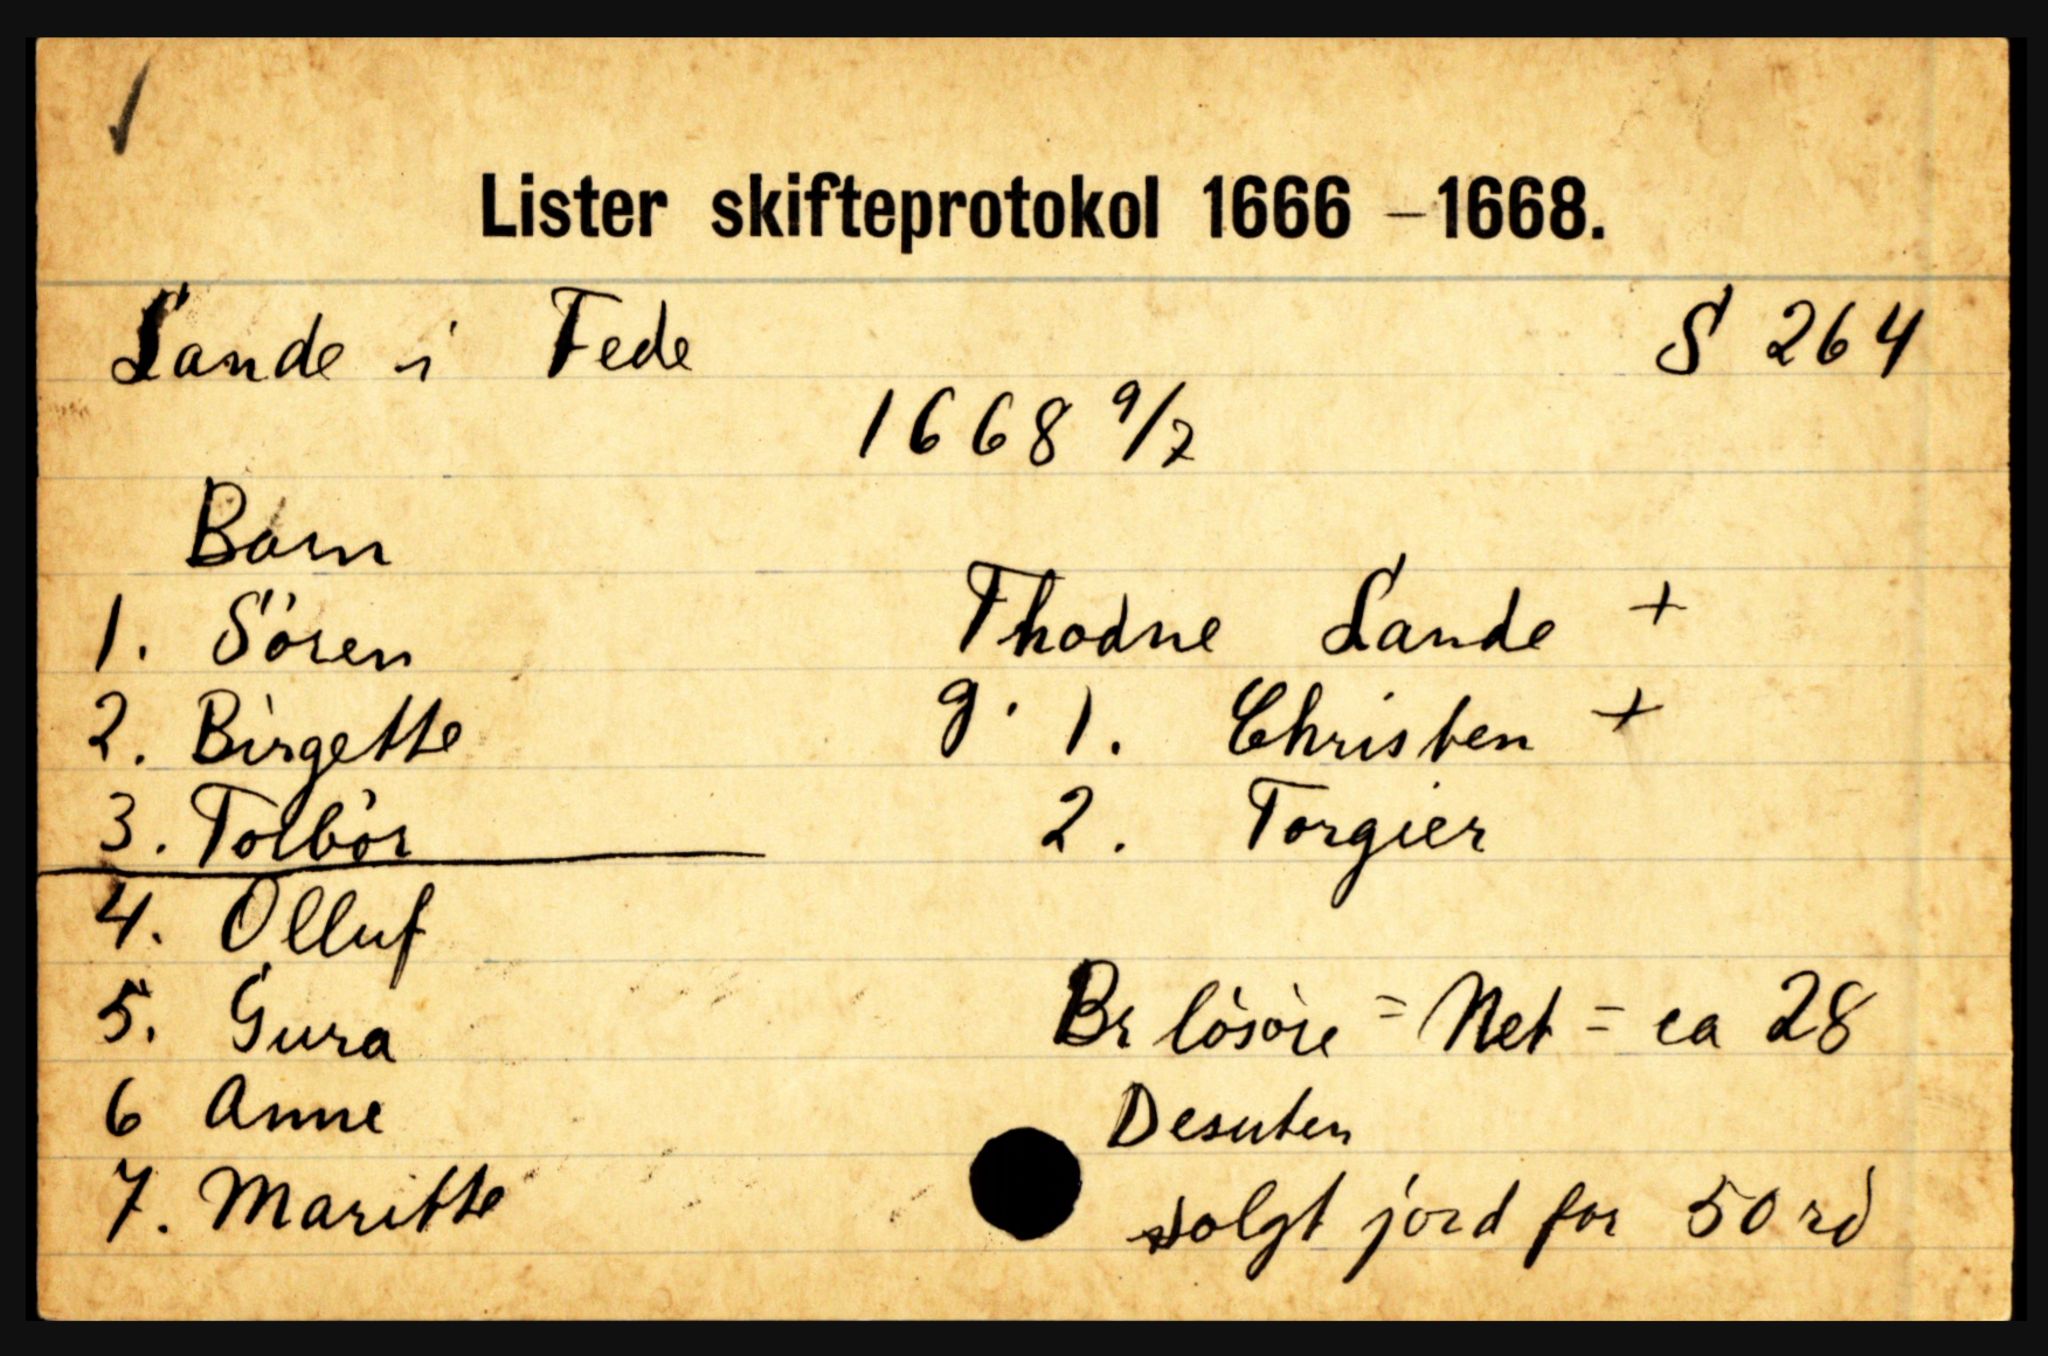 Lister skifteprotokol 1666 – 1668.
Lande i Fede S 264
1668 9/7
Barn
1. Sören
2. Birgette
3. Tolbór
4. Olluf
5. Gura
6 Anne
7. Maritte
Thodne Lande +
g. 1. Christen +
2. Torgier
Br lösöre = Net = ca 28
Desuten
solgt jord for 50 rd